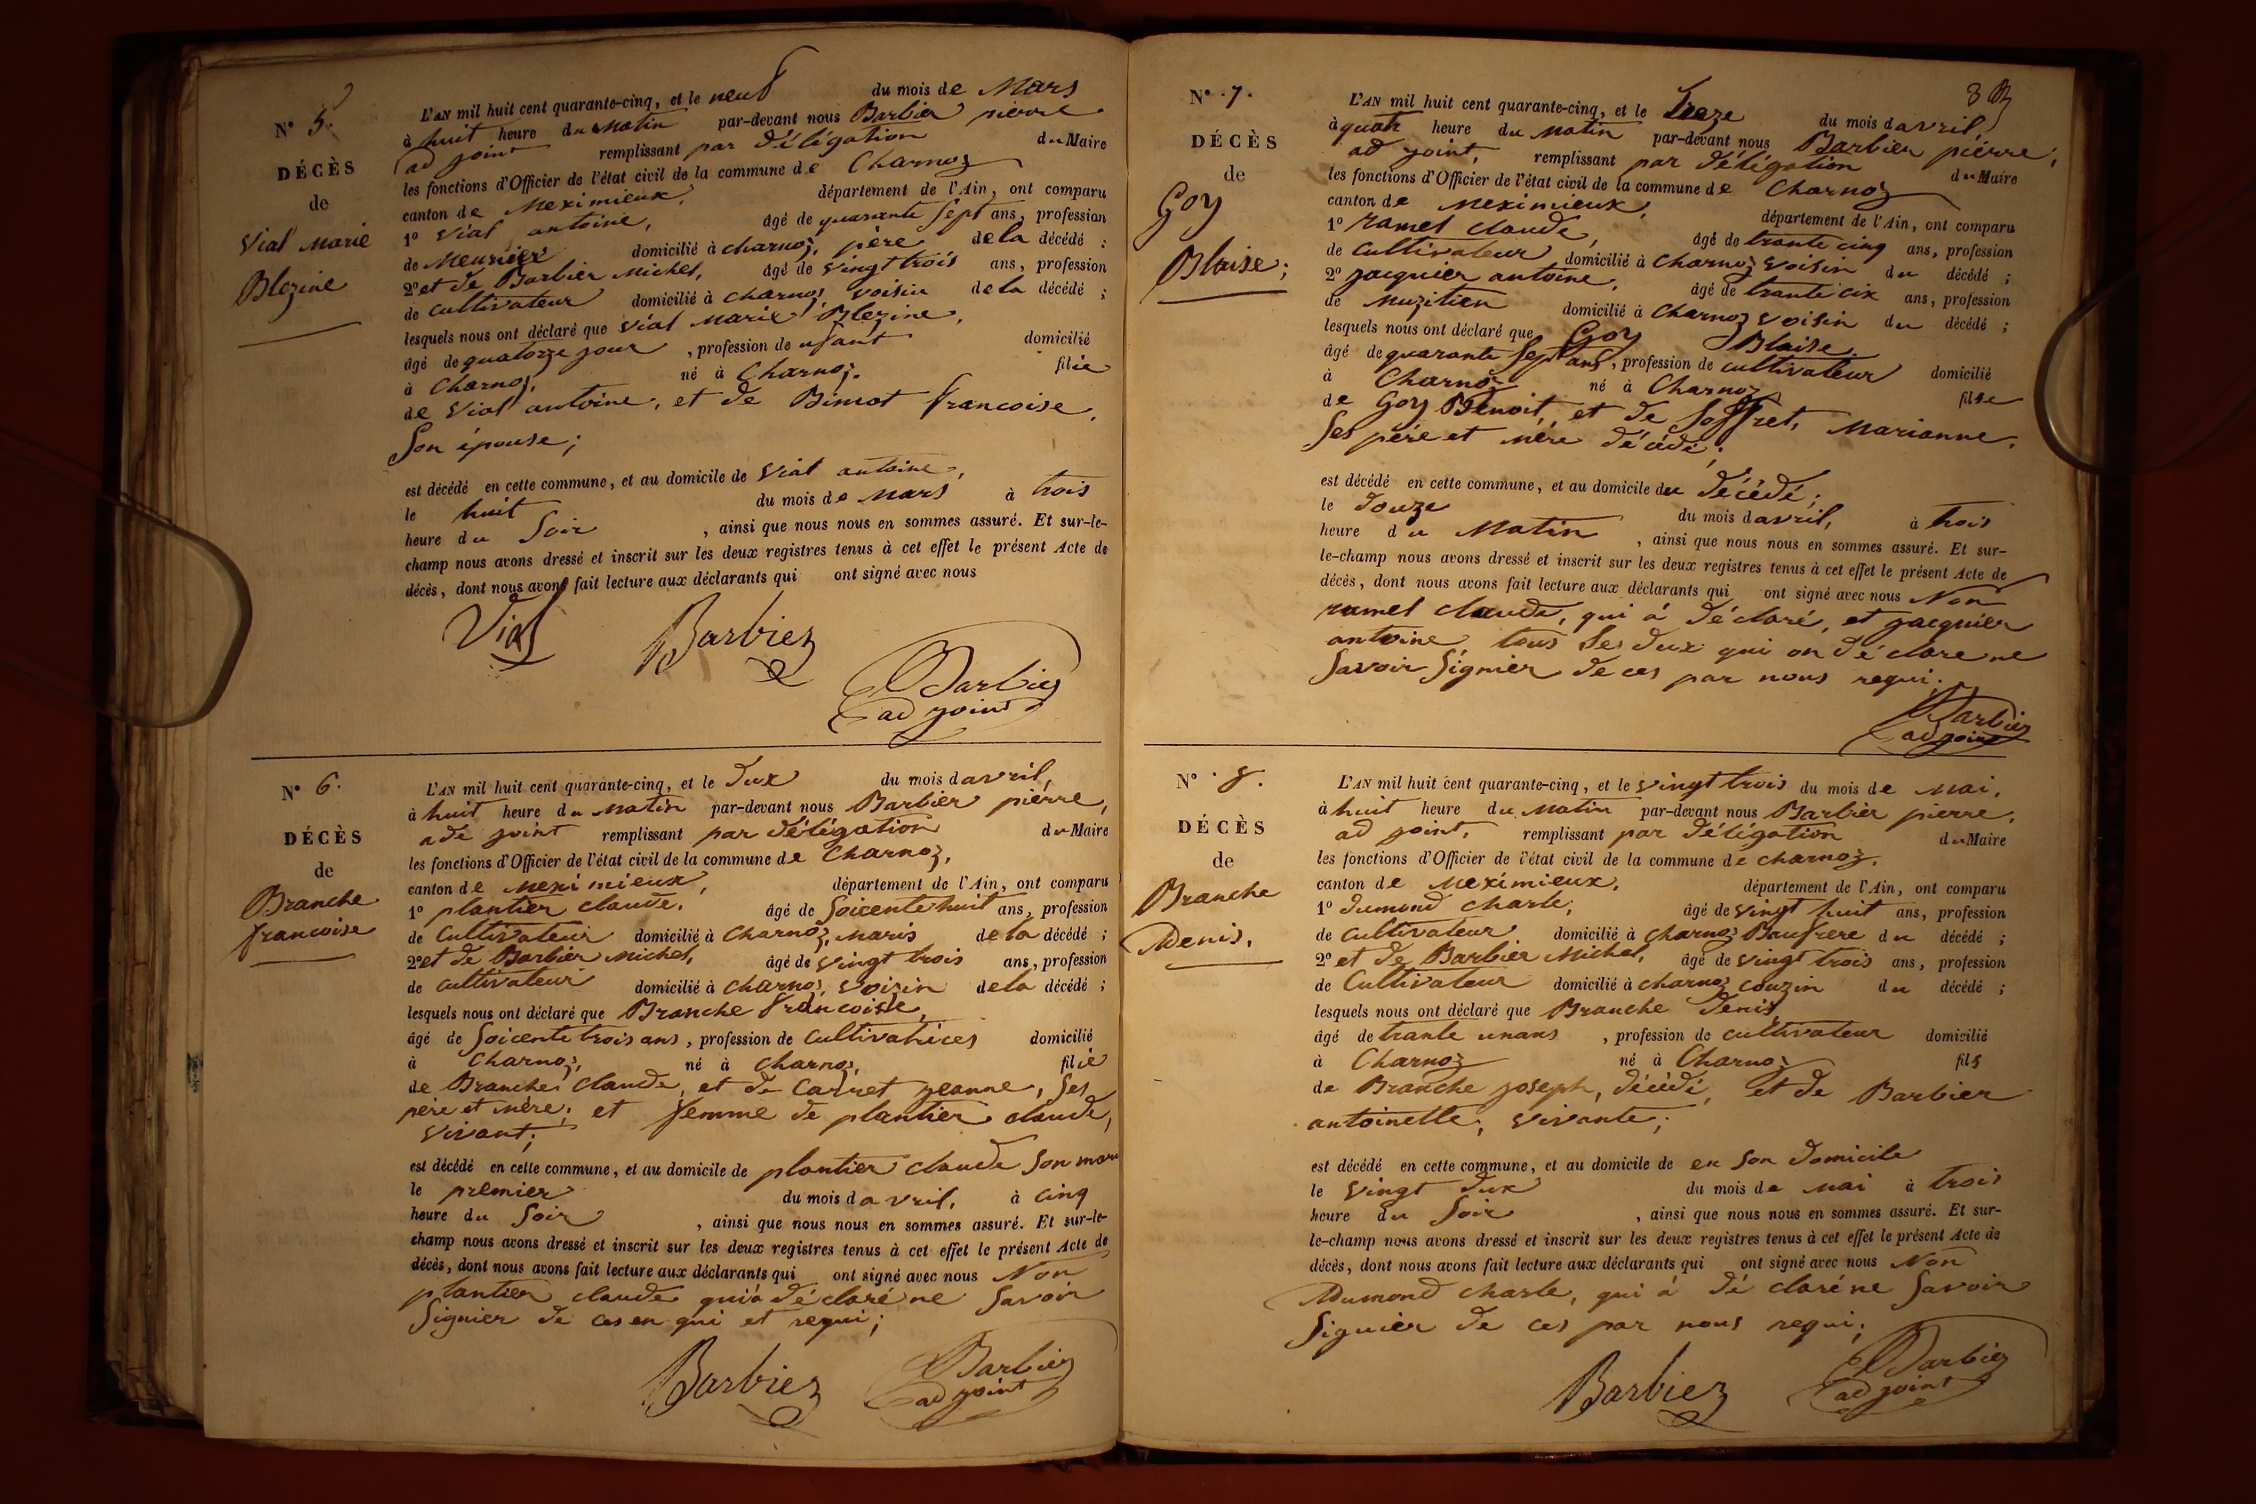 N° 5.
DÉCÈS
de
Vial Marie
Blezine
L'AN mil huit cent quarante-cinq, et le neuf du mois de Mars
à huit heure du Matin par-devant nous Barbier pierre
ad joint remplissant par délégation du Maire
les fonctions d'Officier de l'état civil de la commune de Charnoz
canton de Meximieux, département de l'Ain, ont comparu
1° Vial antoine, âgé de quarante sept ans, profession
de Meunier domicilié à charnoz, père de la décédé ;
2° et de Barbier Michel, âgé de vingt trois ans, profession
de cultivateur domicilié à charnoz, voisin de la décédé ;
lesquels nous ont déclaré que vial Marie Blezine,
âgé de quatorze jour, profession de nfant domicilié
à Charnoz, né à Charnoz. filie
de Vial antoine, et de Bimot francoise,
Son épouse ;
est décédé en cette commune, et au domicile de Vial antoine,
le huit du mois de Mars à trois
heure du Soir, ainsi que nous nous en sommes assuré. Et sur-le-
champ nous avons dressé et inscrit sur les deux registres tenus à cet effet le présent Acte de
décès, dont nous avons fait lecture aux déclarants qui ont signé avec nous
Vial Barbier
Barbier
ad joint
N° 6.
DÉCÈS
de
Branche
francoise
L'AN mil huit cent quarante-cinq, et le dux du mois d avril,
à huit heure du Matin par-devant nous Barbier pierre,
ade joint remplissant par délégation du Maire
les fonctions d'Officier de l'état civil de la commune de Charnoz,
canton de Meximieux, département de l'Ain, ont comparu
1° plantier claude, âgé de Soicente huit ans, profession
de Cultivateur domicilié à Charnoz, maris de la décédé ;
2° et de Barbier Michel, âgé de vingt trois ans, profession
de cultivateur domicilié à charnoz, voizin de la décédé ;
lesquels nous ont déclaré que Branche francoisse,
âgé de Soicente trois ans, profession de cultivatrices domicilié
à Charnoz, né à Charnoz, filie
de Branche claude, et de Carret jeanne, Ses
père et mère ; et femme de plantier claude,
vivant ;
est décédé en cette commune, et au domicile de plantier claude Son mari
le premier du mois d avril, à cinq
heure du Soir, ainsi que nous nous en sommes assuré. Et sur-le-
champ nous avons dressé et inscrit sur les deux registres tenus à cet effet le présent Acte de
décès, dont nous avons fait lecture aux déclarants qui ont signé avec nous Non
plantier claude qui a déclaré ne Savoir
Signier de ces en qui et requi ;
Barbier Barbier
ad joint
8
N° 7.
DÉCÈS
de
Goy
Blaise ;
L'AN mil huit cent quarante-cinq, et le Treze du mois d avril,
à quatr heure du Matin par-devant nous Barbier pierre,
ad joint, remplissant par délégation du Maire
les fonctions d'Officier de l'état civil de la commune de Charnoz
canton de Meximieux, département de l'Ain, ont comparu
1° ramel claude, âgé de trante cinq ans, profession
de cultivateur domicilié à Charnoz voisin du décédé ;
2° jacquier antoine, âgé de trante cix ans, profession
de Muzitien domicilié à Charnoz voisin du décédé ;
lesquels nous ont déclaré que Goy Blaise,
âgé de quarante Sept ans, profession de cultivateur domicilié
à Charnoz né à Charnoz filse
de Goy Benoit, et de Soffret, Marianne,
Ses père et mère décédé ;
est décédé en cette commune, et au domicile du décédé ;
le douze du mois d avril, à trois
heure du Matin, ainsi que nous nous en sommes assuré. Et sur-
le-champ nous avons dressé et inscrit sur les deux registres tenus à cet effet le présent Acte de
décès, dont nous avons fait lecture aux déclarants qui ont signé avec nous Non
ramel claude, qui a déclaré, et jacquier
antoine tous les dux qui on déclare ne
Savoir Signier de ces par nous requi ;
Barbier
ad joint
N° 8.
DÉCÈS
de
Branche
Denis,
L'AN mil huit cent quarante-cinq, et le vingt trois du mois de Mai,
à huit heure du Matin par-devant nous Barbier pierre,
ad joint, remplissant par délégation du Maire
les fonctions d'Officier de l'état civil de la commune de charnoz,
canton de Meximieux, département de l'Ain, ont comparu
1° dumond Charle, âgé de vingt huit ans, profession
de cultivateur domicilié à charnoz Baufrere du décédé ;
2° et de Barbier Michel, âgé de vingt trois ans, profession
de Cultivateur domicilié à charnoz couzin du décédé ;
lesquels nous ont déclaré que Branche denis,
âgé de trante unans, profession de cultivateur domicilié
à Charnoz né à Charnoz fils
de Branche joseph, décédé, et de Barbier
antoinette, vivante ;
est décédé en cette commune, et au domicile de en son domicile
le vingt dux du mois de mai à trois
heure du Soir, ainsi que nous nous en sommes assuré. Et sur-
le-champ nous avons dressé et inscrit sur les deux registres tenus à cet effet le présent Acte de
décès, dont nous avons fait lecture aux déclarants qui ont signé avec nous Non
Dumond Charle, qui a déclaré ne Savoir
Signier de ces par nous requi ;
Barbier Barbier
ad joint